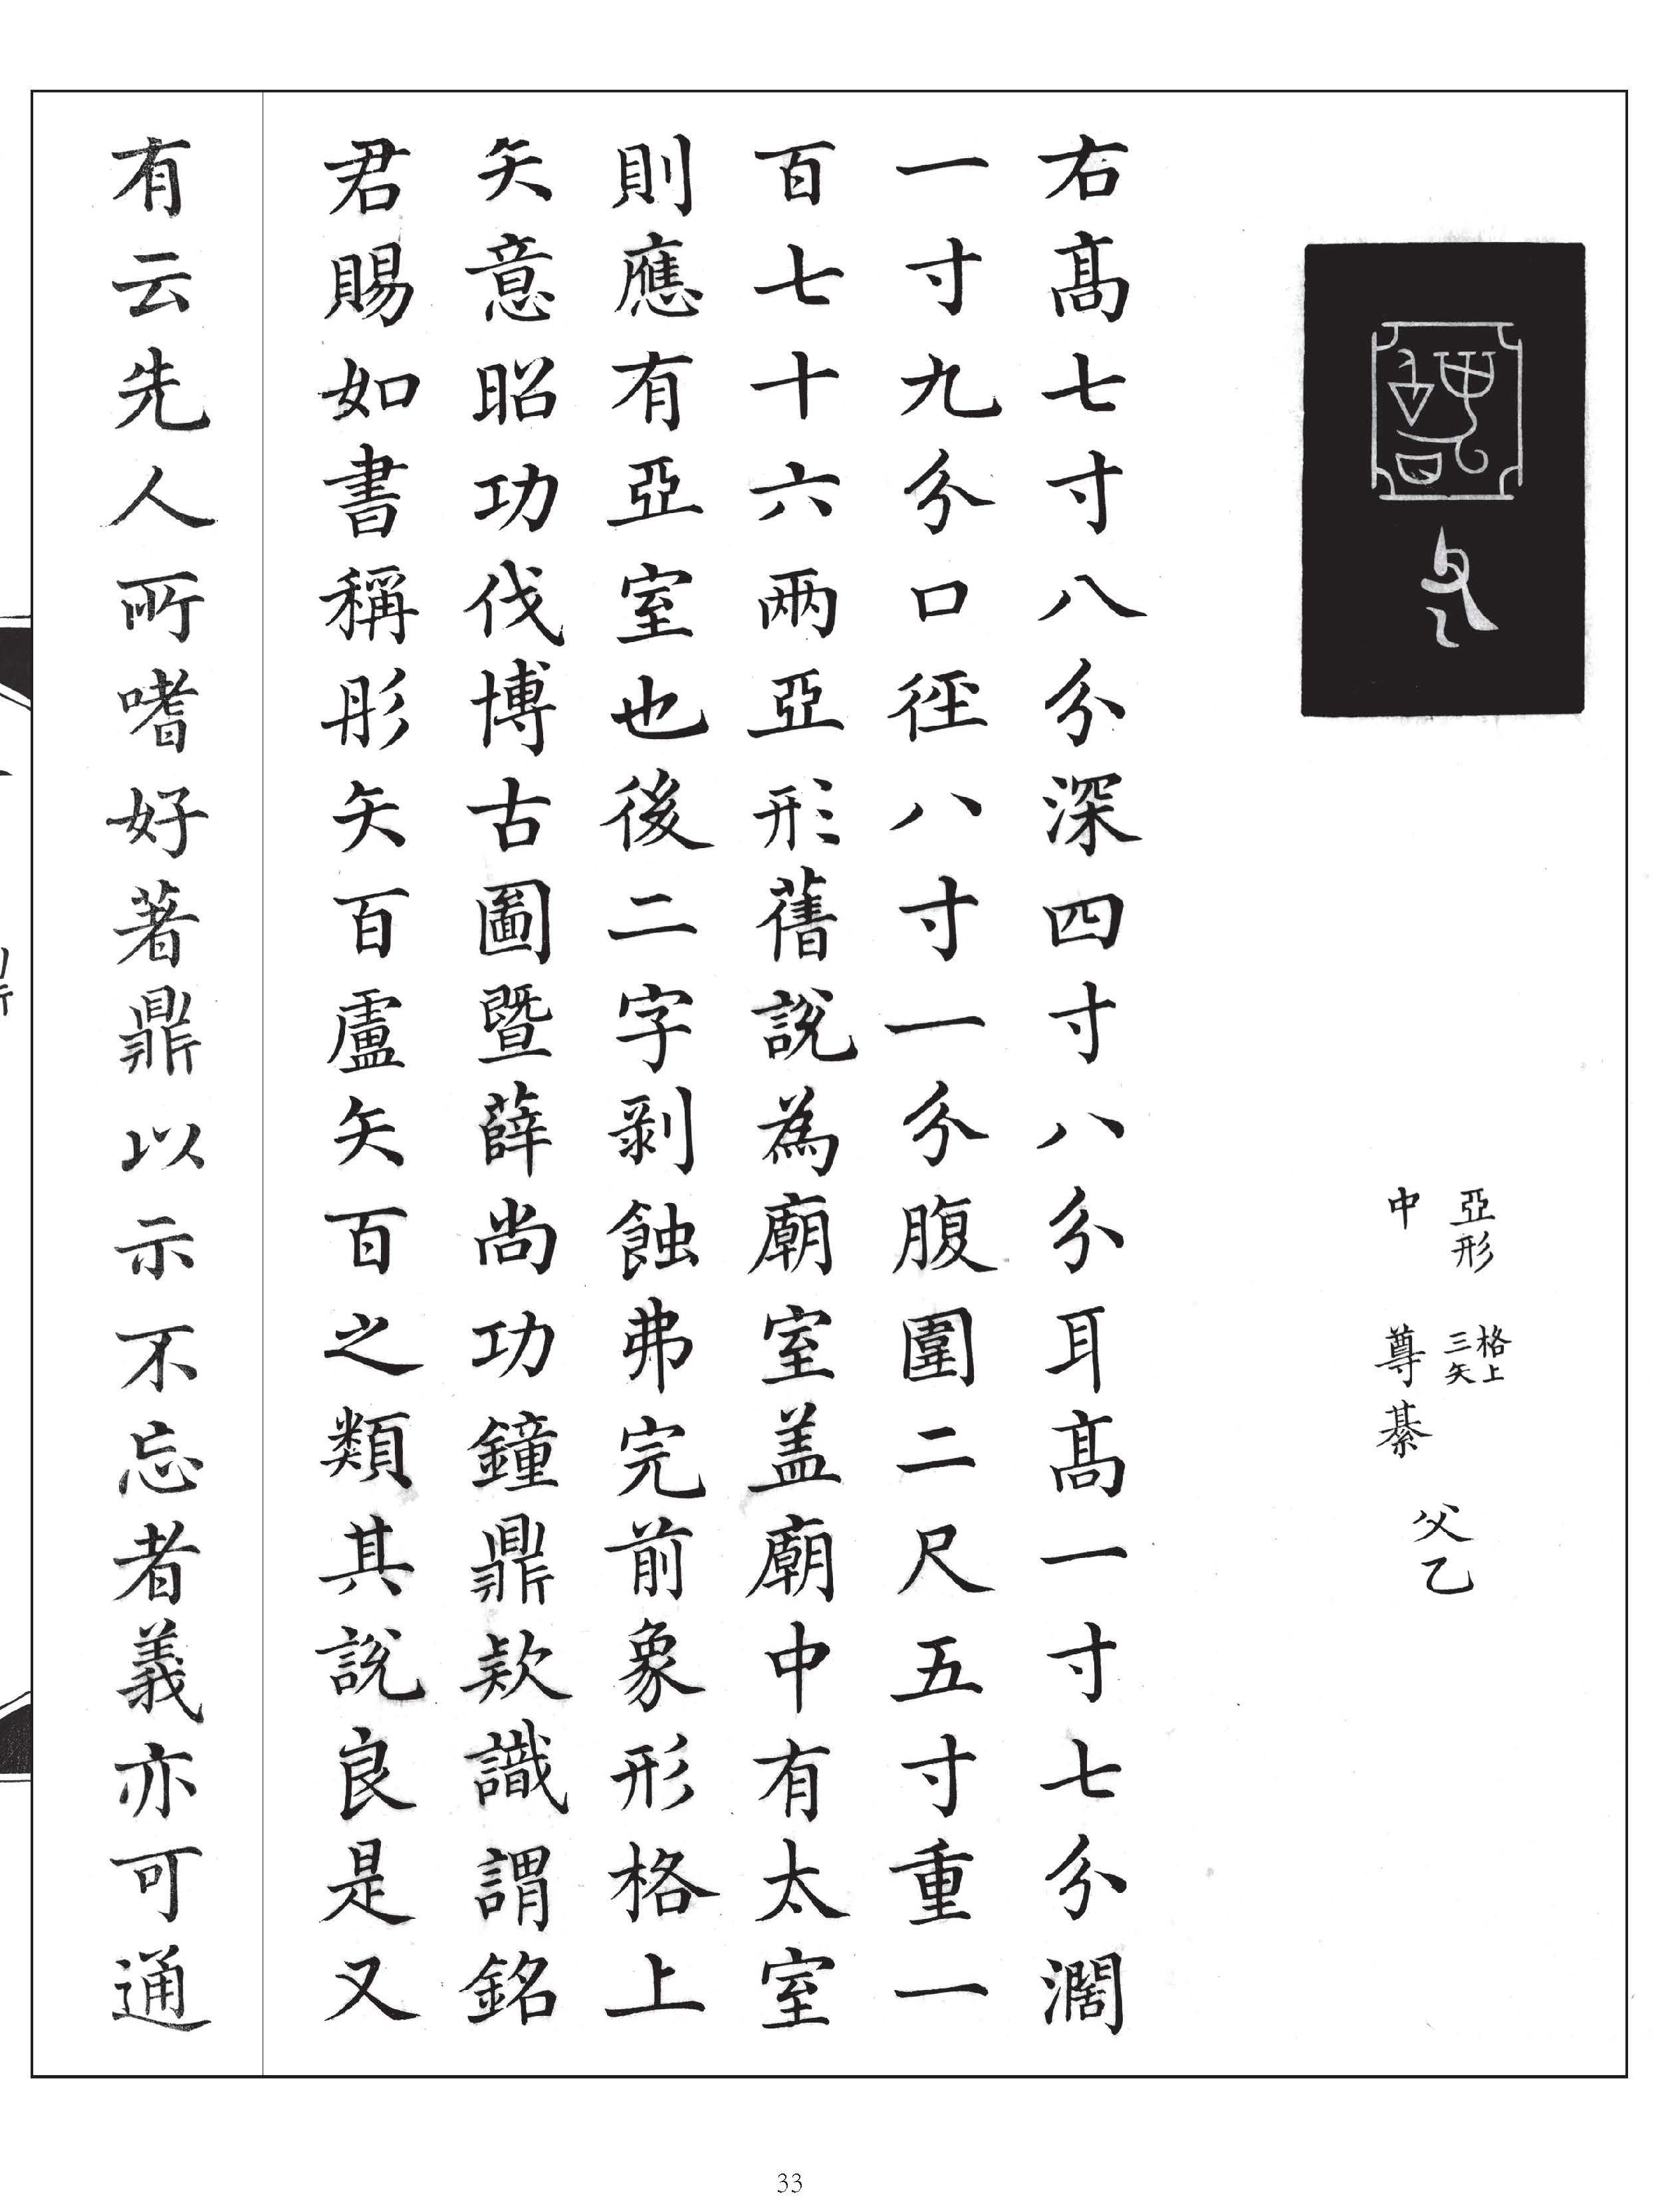 亞形 格上三矢
中 尊綦
父乙
右高七寸八分深四寸八分耳高一寸七分濶
一寸九分口徑八寸一分腹圍二尺五寸重一
百七十六兩亞形舊說為廟室盖廟中有太室
則應有亞室也後二字剥蝕弗完前象形格上
矢意昭功伐博古圖暨薛尚功鐘鼎欵識謂銘
君賜如書稱彤矢百盧矢百之類其說良是又
有云先人所嗜好著鼎以示不忘者義亦可通
33